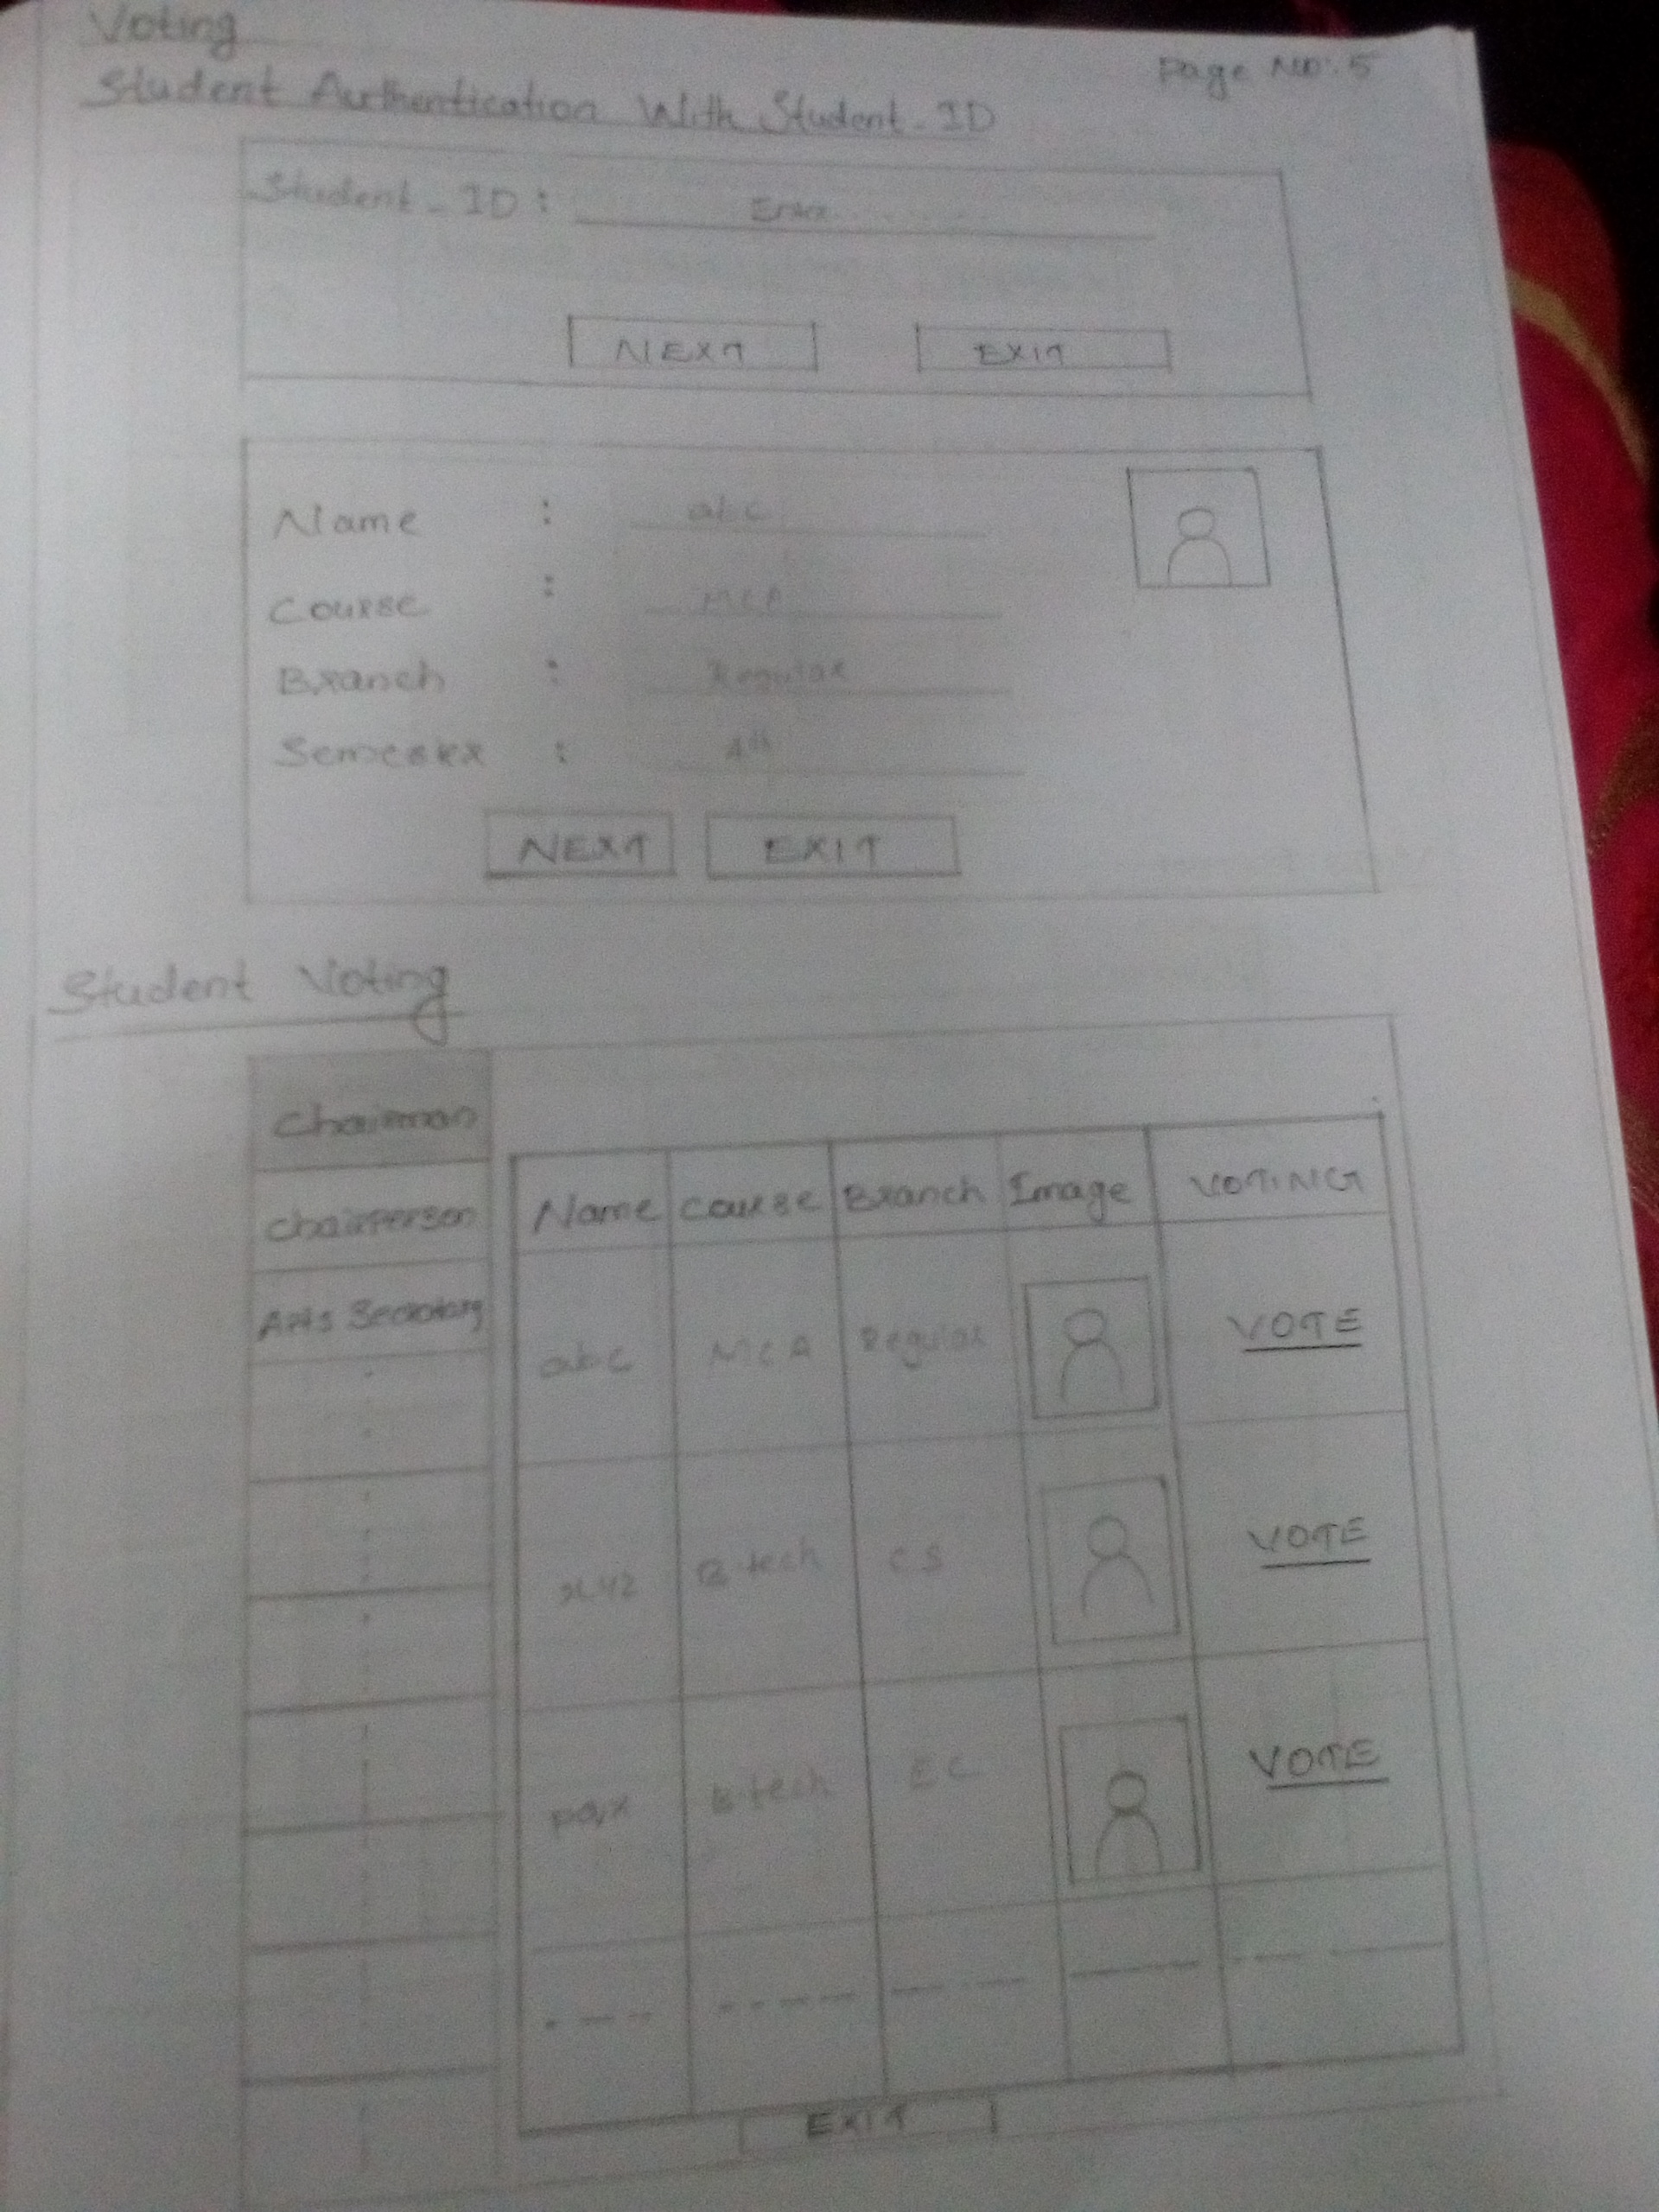 Voting
Page No: 5
Student Authentication With Student-ID
Student-ID : Enter
NEXT EXIT
Name : abc
Course : MCA
Branch : Regular
Semester : 4th
NEXT EXIT
Student Voting
Chairman
Chairperson
Arts Secretary
Name Course Branch Image VOTING
abc MCA Regular VOTE
xyz B-tech CS VOTE
pqr B-tech EC VOTE
EXIT